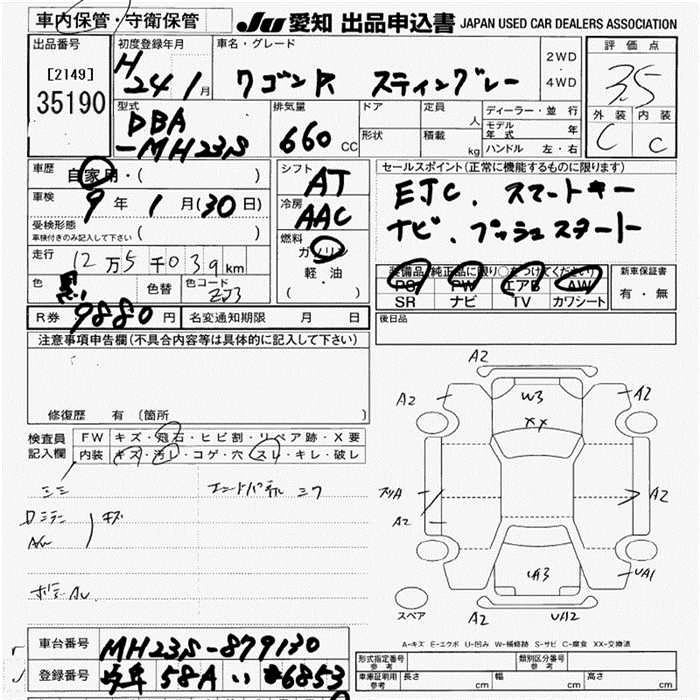 車内保管・守衛保管
JU 愛知 出品申込書 JAPAN USED CAR DEALERS ASSOCIATION
出品番号
[2149]
35190
初度登録年月
H 24 1月
車名・グレード
ワゴンR スティングレー
2WD
4WD
評価点
3.5
外装 内装
C C
型式
DBA
-MH23S
排気量
660 CC
ドア
形状
定員 人
積載 kg
ディーラー・並行
モデル年式 年
ハンドル 左・右
車歴
自家用・( )
車検
9年1月(30日)
受検形態
車検付きのみ記入して下さい ( )
走行
12万5千039km
色 黒 色替 色コード ZJ3
シフト
AT
冷房
AAC
燃料
ガソリン
軽・油
( )
セールスポイント(正常に機能するものに限ります)
EJC、スマートキー
ナビ、プッシュスタート
装備品(純正品に限り○をつけてください)
PS PW エアB AW
SR ナビ TV カワシート
新車保証書
有・無
R券 9880円 名変通知期限 月 日
後日品
注意事項申告欄(不具合内容等は具体的に記入して下さい)
修復歴 有 (箇所 )
検査員記入欄
FW キズ・飛石・ヒビ割・リペア跡・X要
内装 キズ・汚レ・コゲ・穴・スレ・キレ・破レ
キズ
A2
A2
A2
W3
XX
A2
A2
A2
UA3
UA1
UA2
A2
スペア
A-キズ E-エクボ U-凹み W-補修跡 S-サビ C-腐食 XX-交換済
車台番号 MH23S-879130
登録番号 58A い 6853
形式指定番号
参考
類別区分番号
参考
車庫証明用
参考
長さ cm 幅 cm 高さ cm